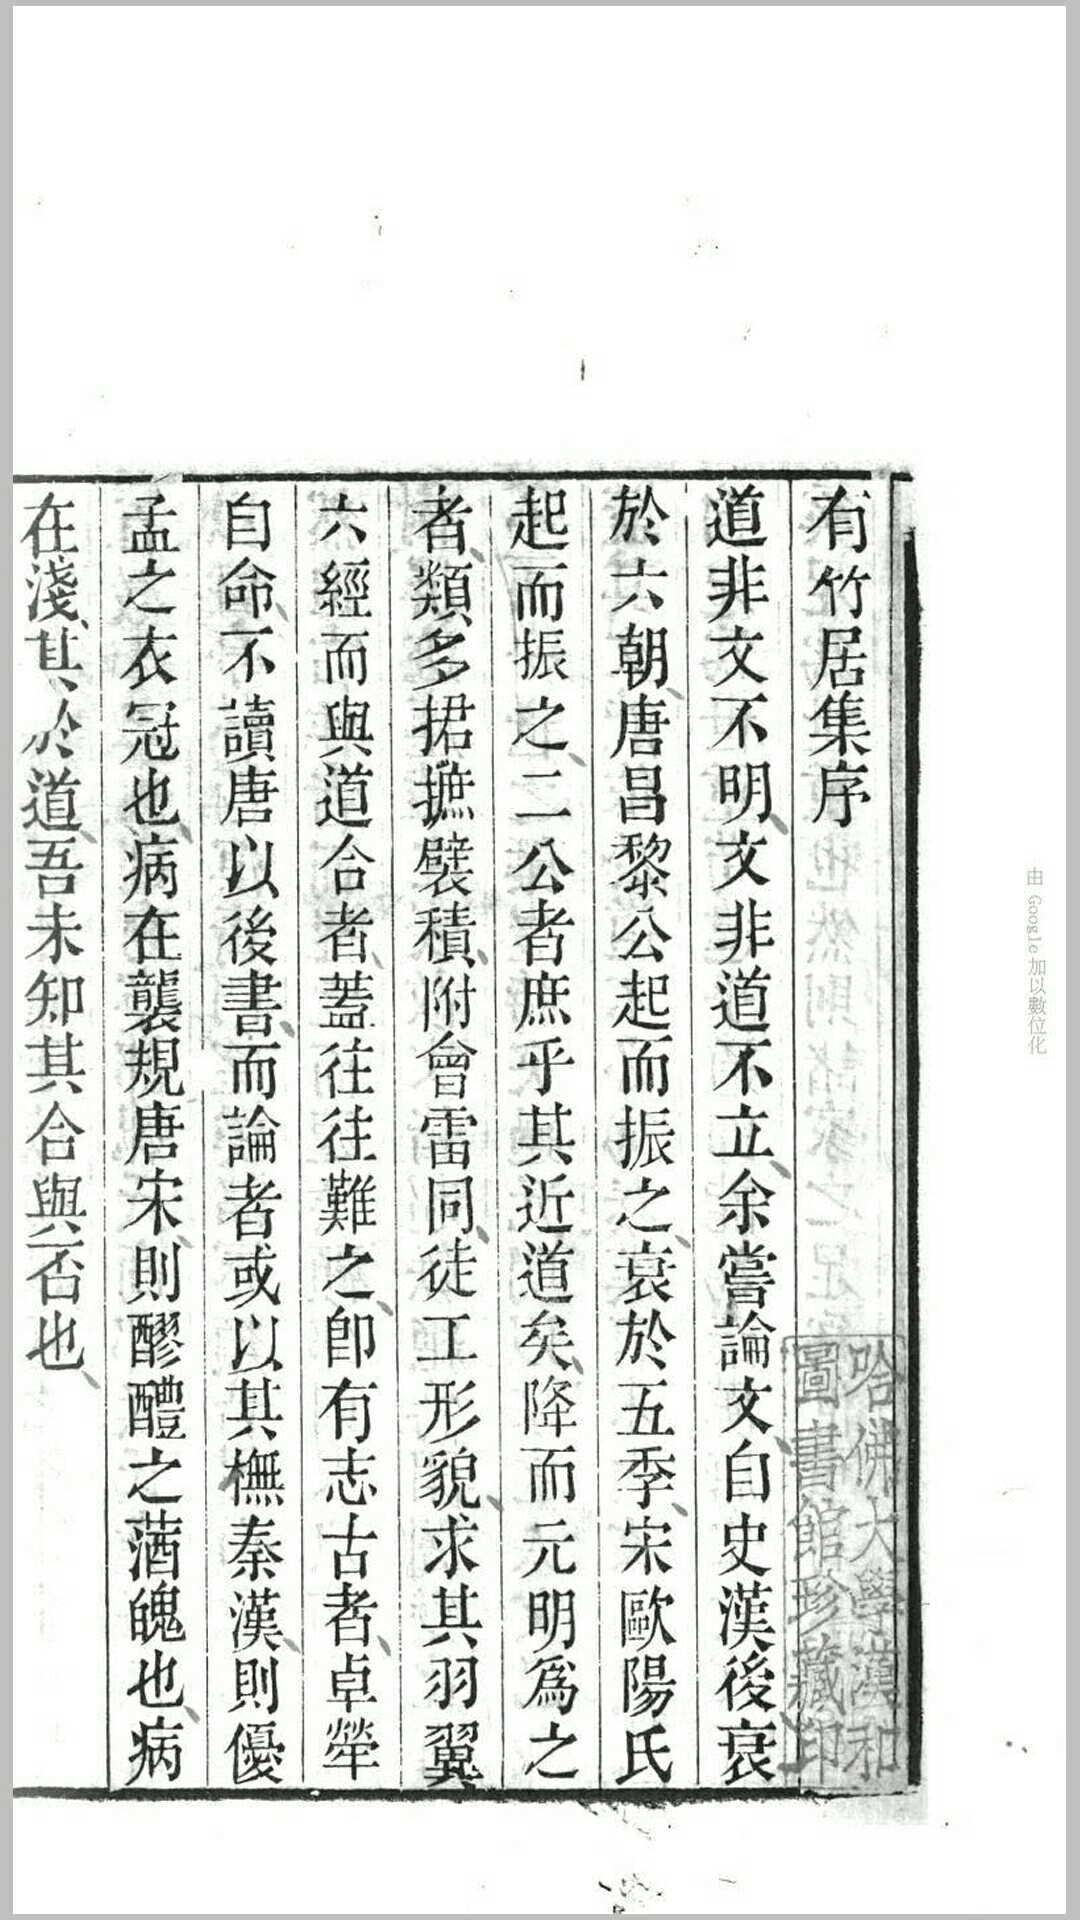 有竹居集序
道非文不明、文非道不立、余嘗論文自史漢後衰
於六朝、唐昌黎公起而振之、衰於五季、宋歐陽氏
起而振之、二公者庶乎其近道矣、降而元明爲之
者、類多捃摭襞積、附會雷同、徒工形貌、求其羽翼
六經而與道合者、蓋往往難之、卽有志古者、卓犖
自命、不讀唐以後書、而論者或以其橅秦漢、則優
孟之衣冠也、病在襲規唐宋、則醪醴之蒩魄也、病
在淺、其於道、吾未知其合與否也、
哈佛大學漢和
圖書館珍藏印
由 Google 加以數位化